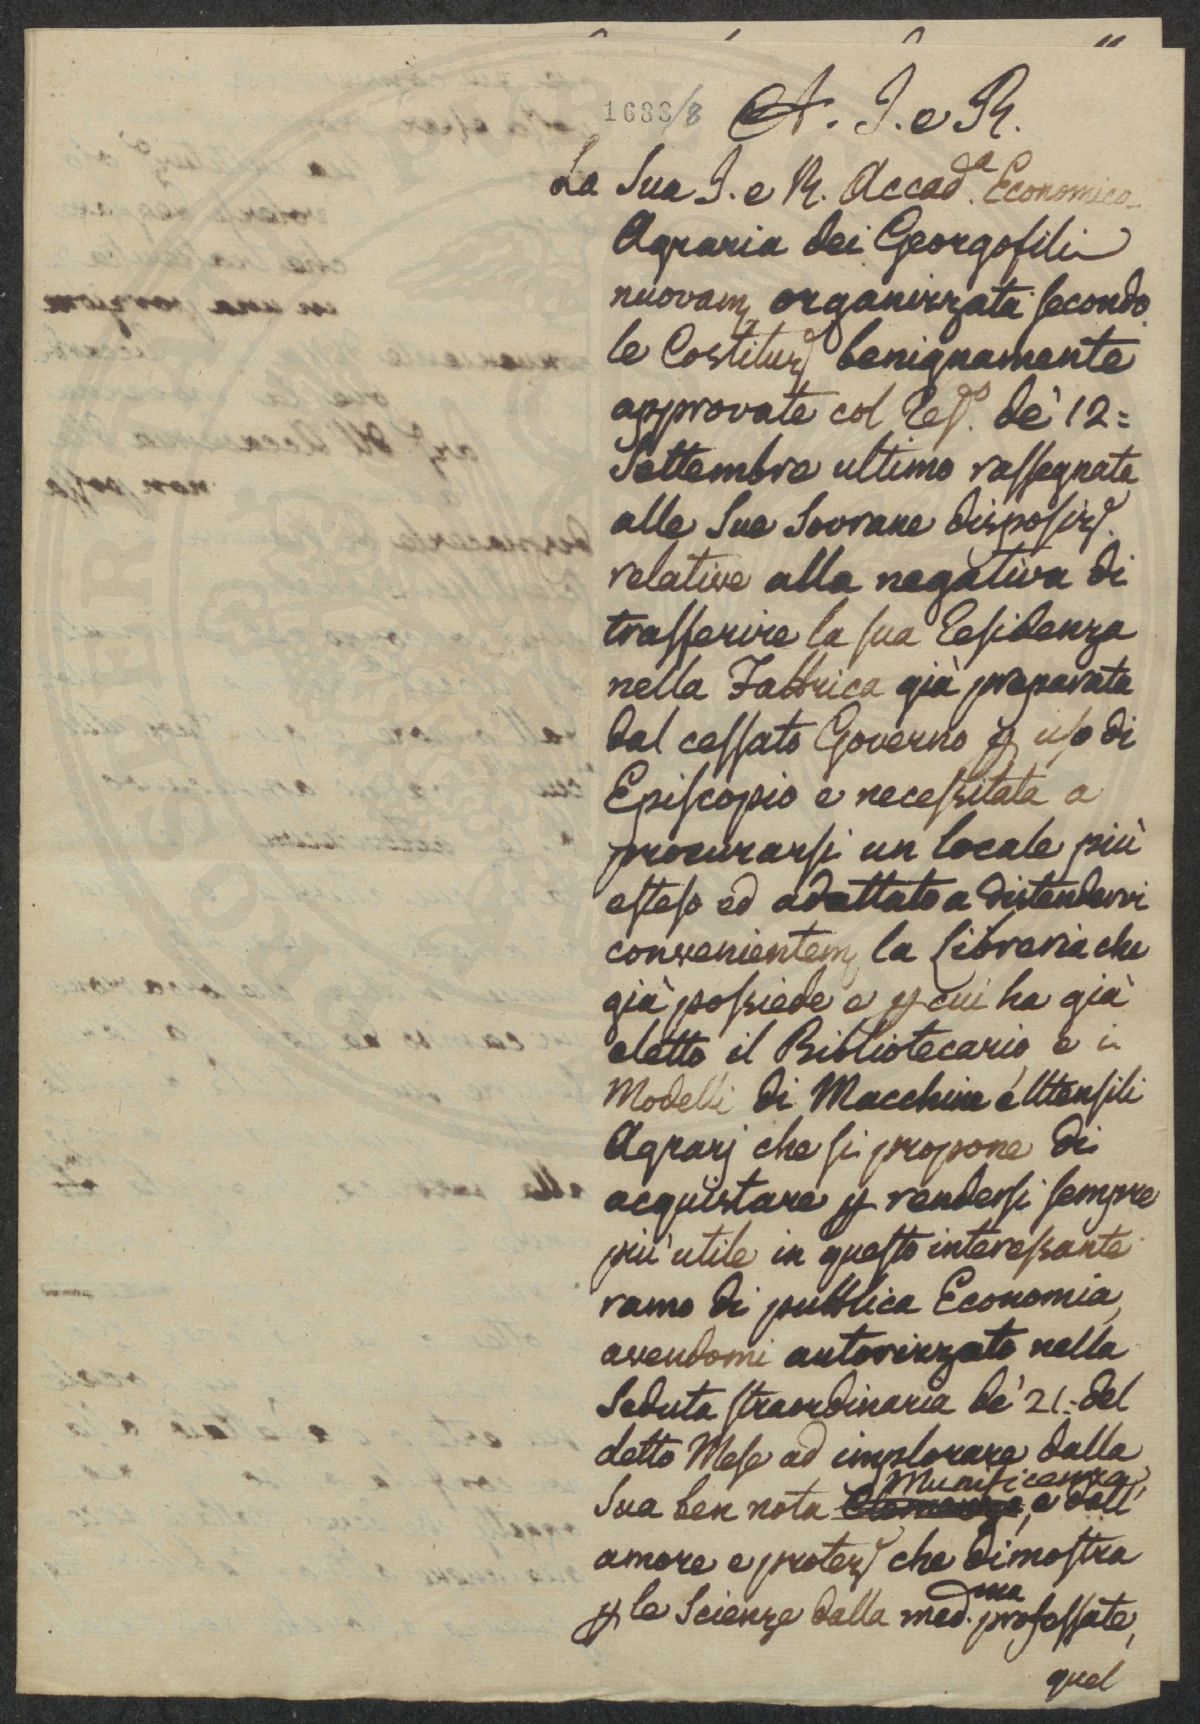 1683/8
A. I. e R.
La Sua I. e R. Accad.a Economico-
Agraria dei Georgofili
nuovam. organizzata secondo
le Costituz. benignamente
approvate col Res.o de' 12=
Settembre ultimo rassegnata
alle Sue Sovrane disposiz.
relative alla negativa di
trasferire la sua Residenza
nella Fabbrica già preparata
dal cessato Governo p uso di
Episcopio e necessitata a
procurarsi un locale più
esteso ed adattato a distendervi
convenientem. la Libreria che
già possiede e p cui ha già
eletto il Bibliotecario, e i
Modelli di Macchine e Utensili
Agrarj che si propone di
acquistare p rendersi sempre
più utile in questo interessante
ramo di pubblica Economia,
avendomi autorizzato nella
Seduta straordinaria de' 21. del
detto Mese ad implorare dalla
Munificenza,
Sua ben nota Clemenza, e dall'
amore e protez. che dimostra
p le Scienze dalla med.ma professate,
quel